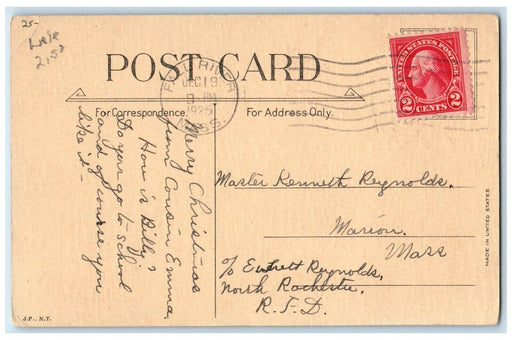 25-
2.50
POST CARD
FALL RIVER
DEC 19
PM
1925
MASS.
UNITED STATES POSTAGE
2 CENTS 2
For Correspondence.
For Address Only.
Merry Christmas
from Cousin Emma,
How is Billy?
Do you go to school
and of course you
like it -
Master Kenneth Reynolds.
Marion.
Mass
c/o Everett Reynolds,
North Rochester,
R.F.D.
MADE IN UNITED STATES
J.P., N.Y.